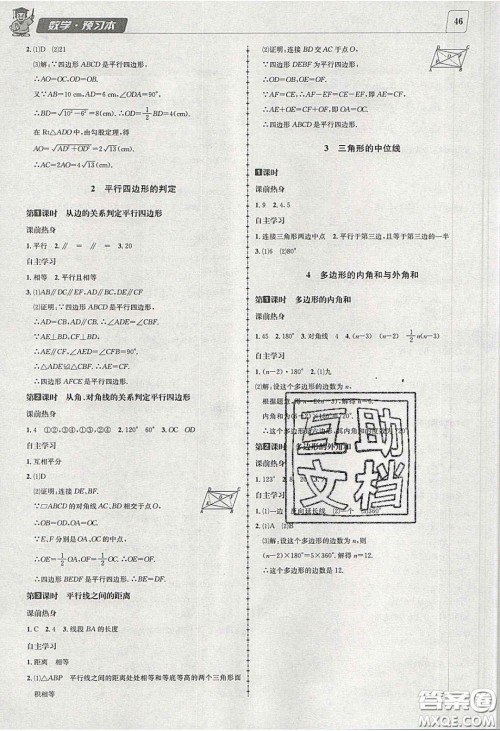 数学·预习本
46
2.(1)D (2)21
(3)解:∵四边形 ABCD 是平行四边形,
∴AO=OC,BO=DO,AD=BC.
又∵AB=10 cm,AD=8 cm,∠ODA=90°,
∴BD=√(10²-6²)=8(cm),OD=1/2BD=4(cm).
在 Rt△ADO 中,由勾股定理,得
AO=√(AD²+OD²)=2√13(cm),
∴AC=2AO=4√13(cm).
2 平行四边形的判定
第1课时 从边的关系判定平行四边形
课前热身
1.平行 2.∥ = ∥ = 3.20
自主学习
1.相等 2.平行四边形
3.(1)AB∥DC∥EF,AD∥BC,DE∥CF
(2)证明:∵四边形 ABCD 是平行四边形,
∴AB=DC,AB∥DC.
∵AE⊥BD,CF⊥BD,
∴AE∥CF,∠AEB=∠CFD=90°,
∴△ABE≌△CDF,
∴AE=CF.
∴四边形 AECF 是平行四边形.
第2课时 从角、对角线的关系判定平行四边形
课前热身
1.4 ①②,③④,①③,②④ 2.120° 60° 3.OC OD
自主学习
1.互相平分
2.(1)D
(2)证明:连接 DE,BF.
∵▱ABCD 的对角线相交于点 O,
∴OB=OD,OA=OC.
∵E,F 分别是 OA,OC 的中点,
∴OE=1/2OA,OF=1/2OC,
∴OE=OF,
∴四边形 BEDF 是平行四边形.
第3课时 平行线之间的距离
课前热身
1.C 2.4 3.线段 BA 的长度
自主学习
1.距离 相等
2.(1)△ABP 平行线之间的距离处处相等和等底等高的两个三角形面
积相等
(2)证明:连接 BD 交 AC 于点 O,
∵四边形 DEBF 为平行四边形,
∴OD=OB,OE=OF.
∵AF=CE,∴AF-EF=CE-EF,即 AE=CF,
∴AE+OE=CF+OF,即 OA=OC.
∴四边形 ABCD 是平行四边形.
3 三角形的中位线
1课时
课前热身
1.9 2.4.5
自主学习
1.连接三角形两边中点 2.平行于第三边,且等于第三边的一半
3.(1)6 (2)80°
4 多边形的内角和与外角和
第1课时 多边形的内角和
课前热身
1.45 2.180° 3.对角线 4 (n-3) (n-2)
自主学习
1.(n-2)·180° 2.(1)九
(2)解:设这个多边形的边数为 n,
根据题意,
内角和为
∴这个多边形
第2课时 多边形的外角和
课前热身
1.123° 2.8
自主学习
2.(1)A (2)D
(3)解:设这个多边形的边数为 n,
(n-2)×180°=5×360°. 解得 n=12.
∴这个多边形的边数是 12.
互助
文档
答案圈
MXQE.COM